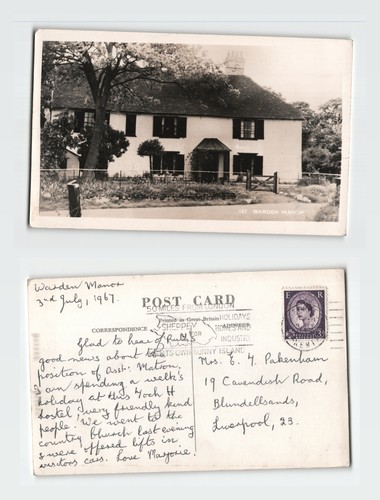 WARDEN MANOR
Warden Manor
3rd July, 1967.
POST CARD
Printed in Great Britain
CORRESPONDENCE
ADDRESS
50 MILES FROM LONDON
SHEPPEY
HOLIDAYS
HOMES AND
INDUSTRY
ITS OWN SUNNY ISLAND
Glad to hear Ruth's
good news about the
position of Asst. Matron.
I am spending a week's
holiday at this Toch H
hostel very friendly kind
people. We went to the
country church last evening
& were offered lifts in
visitors cars. Love Marjorie.
Mrs. E. Y. Pakenham
19 Cavendish Road,
Blundellsands,
Liverpool, 23.